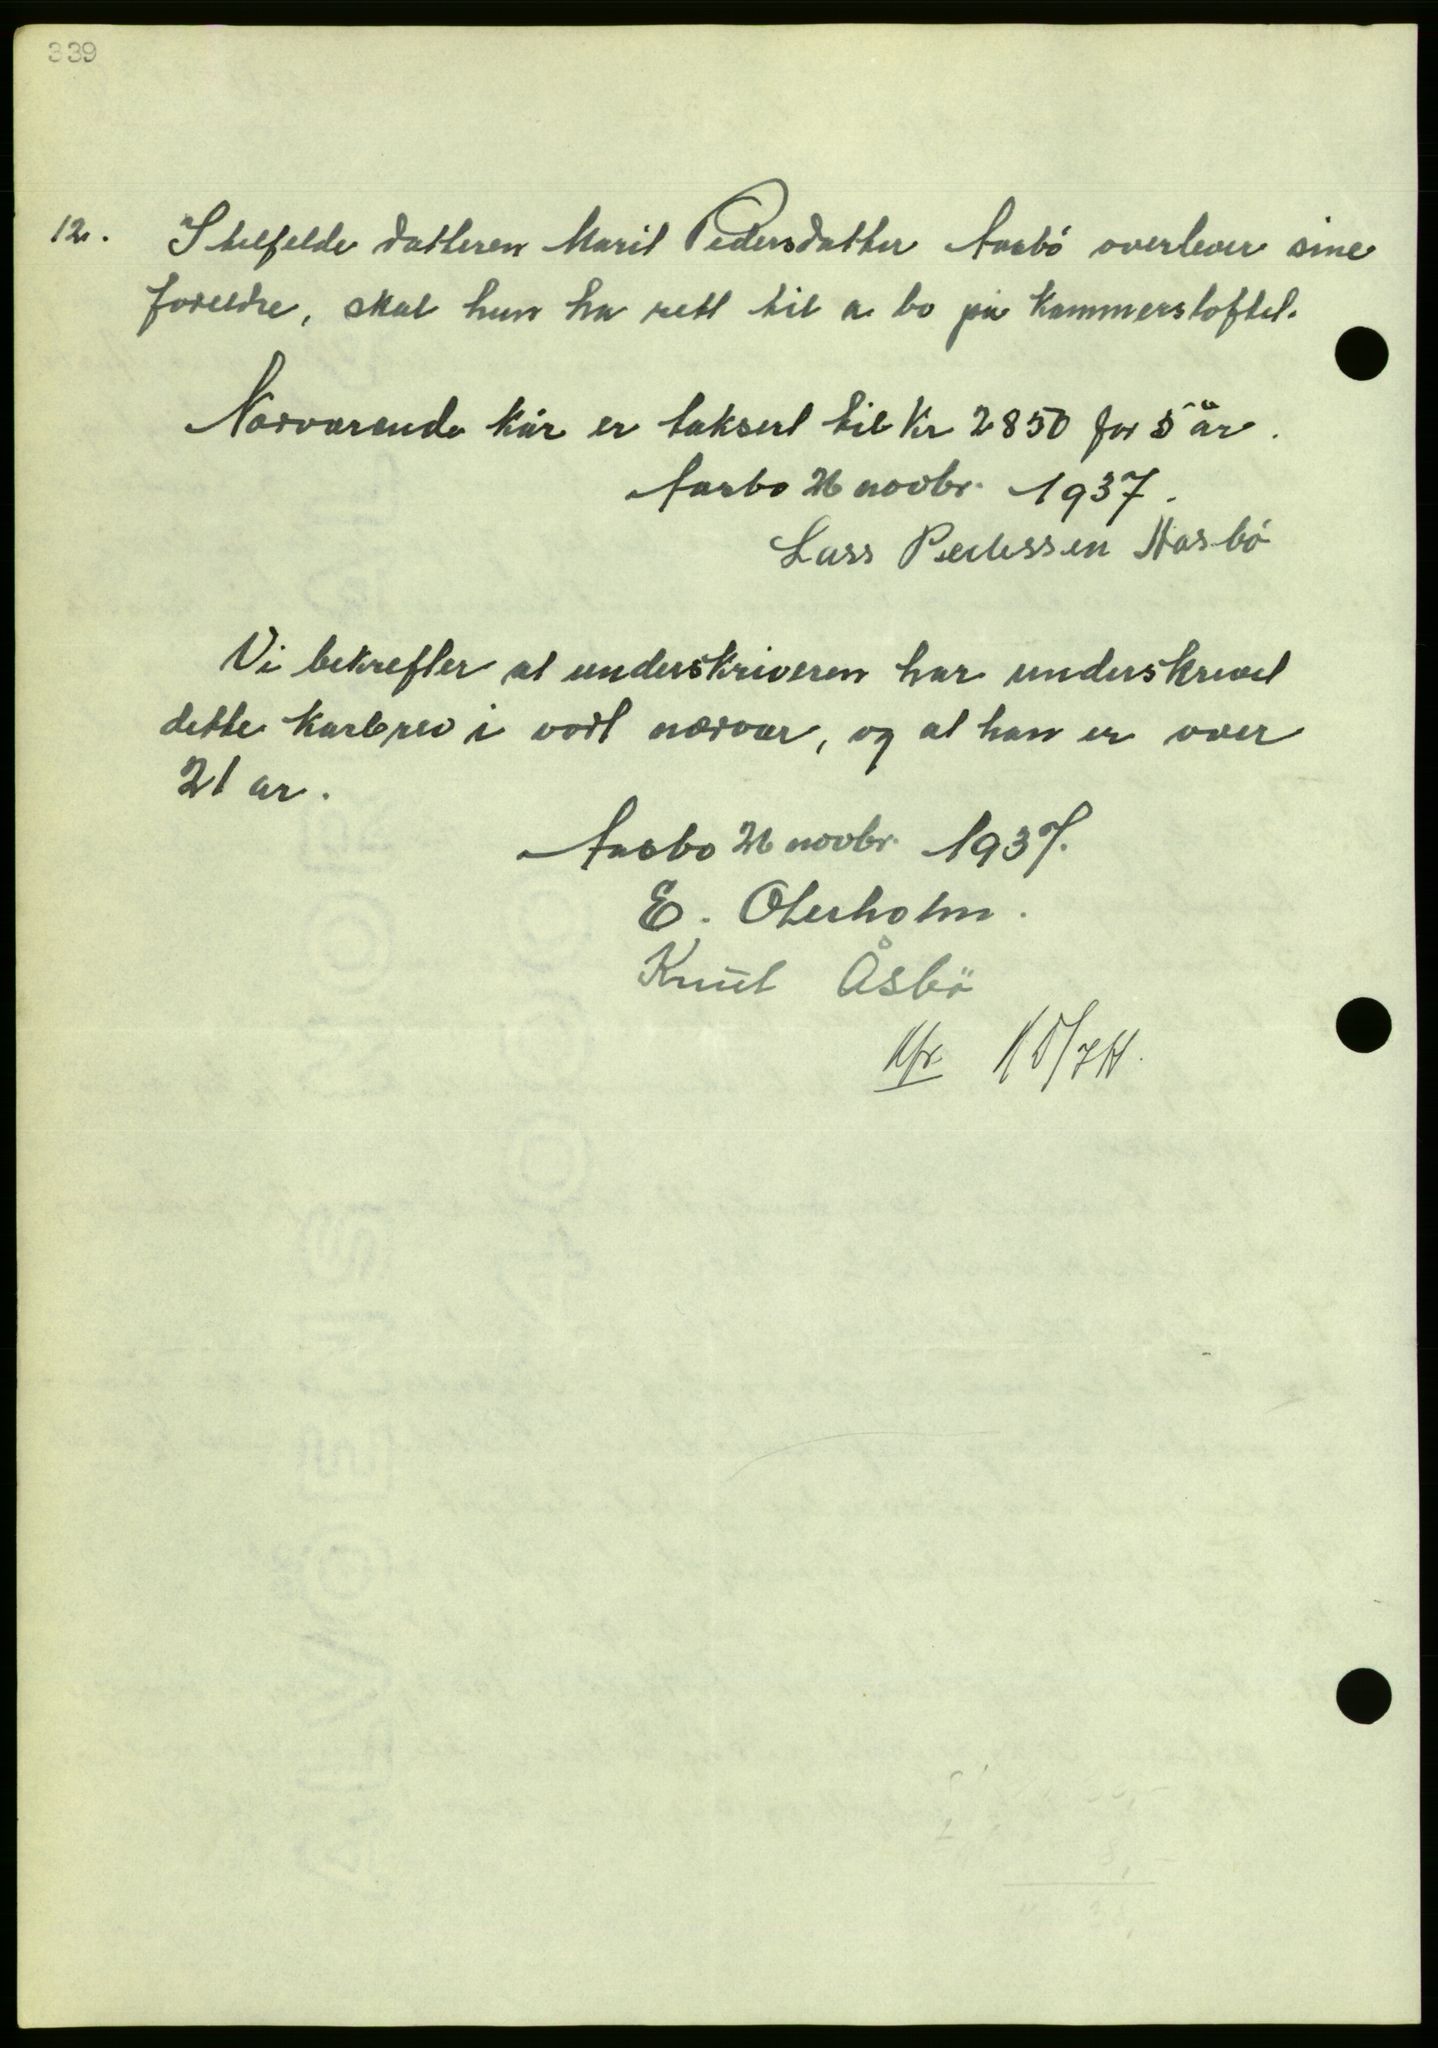 339
12. I tilfelde datteren Marit Pedersdatter Aasbö overlever sine
foreldre, skal hun ha rett til a bo på kammersloftet.
Nærværende kår er taksert til Kr 2850 for 5 år.
Aasbo 26 novbr. 1937.
Lars Pedersen Aasbö
Vi bekrefter at underskriveren har underskrevet
dette karbrev i vort nærvær, og at han er over
21 ar.
Aasbo 26 novbr. 1937.
E. Oterholm.
Knut Åsbö